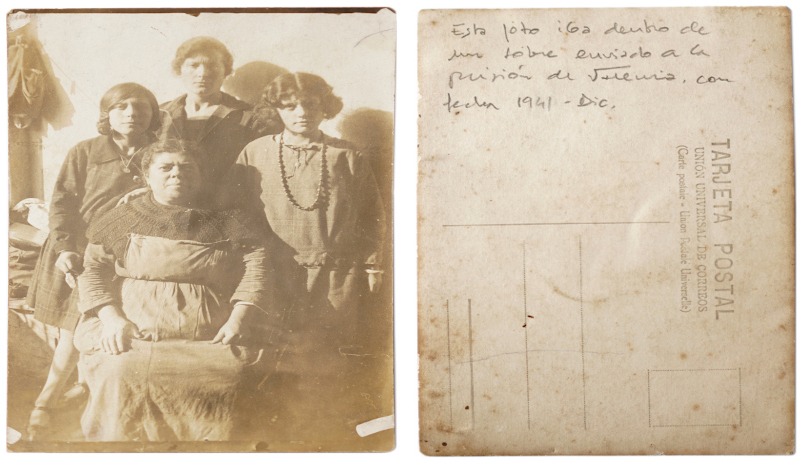 Esta foto iba dentro de
un sobre enviado a la
prisión de Valencia, con
fecha 1941 - Dic.
TARJETA POSTAL
UNIÓN UNIVERSAL DE CORREOS
(Carte postale - Union Postale Universelle)